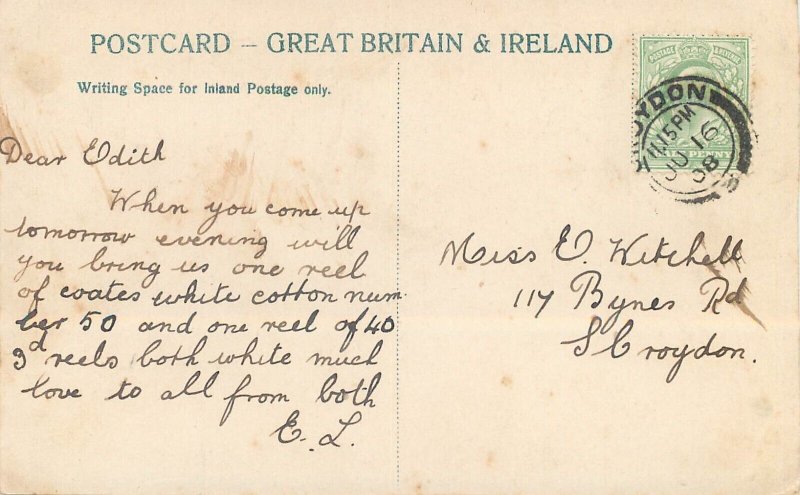 POSTCARD – GREAT BRITAIN & IRELAND
Writing Space for Inland Postage only.
Dear Edith
When you come up
tomorrow evening will
you bring us one reel
of coates white cotton num
ber 50 and one reel of 40
3d reels both white much
love to all from both
E. L.
POSTAGE
CROYDON
11.15 PM
JU 16
08
PENNY
Miss E. Witchell
117 Bynes Rd
S Croydon.